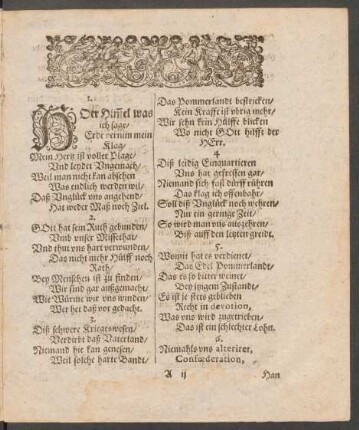 1.
HÖer Him̃el was
ich sage/
Erde vernim mein
Klag/
Mein Hertz ist voller Plage/
Vnd leydet Vngemach/
Weil man nicht kan absehen
Was endlich werden wil/
Daß Vnglück vns angehend/
Hat weder Maß noch Ziel.
2.
GOtt hat sein Ruth gebunden/
Vmb vnser Missethat/
Vnd thut vns hart verwunden/
Das nicht mehr Hülff noch
Rath/
Bey Menschen ist zu finden/
Wir sind gar außgemacht/
Wie Würme wir vns winden/
Wer het daß vor gedacht.
3.
Diß schwere Kriegswesen/
Verdirbt daß Vaterland/
Niemand hie kan genesen/
Weil solche harte Bandt/
Das Pommerlandt bestricken/
Kein Krafft ist vbrig mehr/
Wir sehn kein Hülffe blicken
Wo nicht GOtt hilfft der
HErr.
4
Diß leidig Einquartieren
Vns hat gefressen gar/
Niemand sich fast dürff rühren
Das klag ich offenbahr/
Soll diß Vnglück noch wehren/
Nur ein geringe Zeit/
So wird man vns außzehren/
Biß auff den letzten greidt.
5.
Womit hat es verdienet/
Das Edel Pommerlandt/
Das es so bitter weinet/
Bey jngem Zustandt/
Es ist je stets geblieben
Recht in devotion,
Was vns wird zugetrieben/
Das ist ein schlechter Lohn.
6.
Niemahls vns alterirer,
Confœderation,
A ij
Han